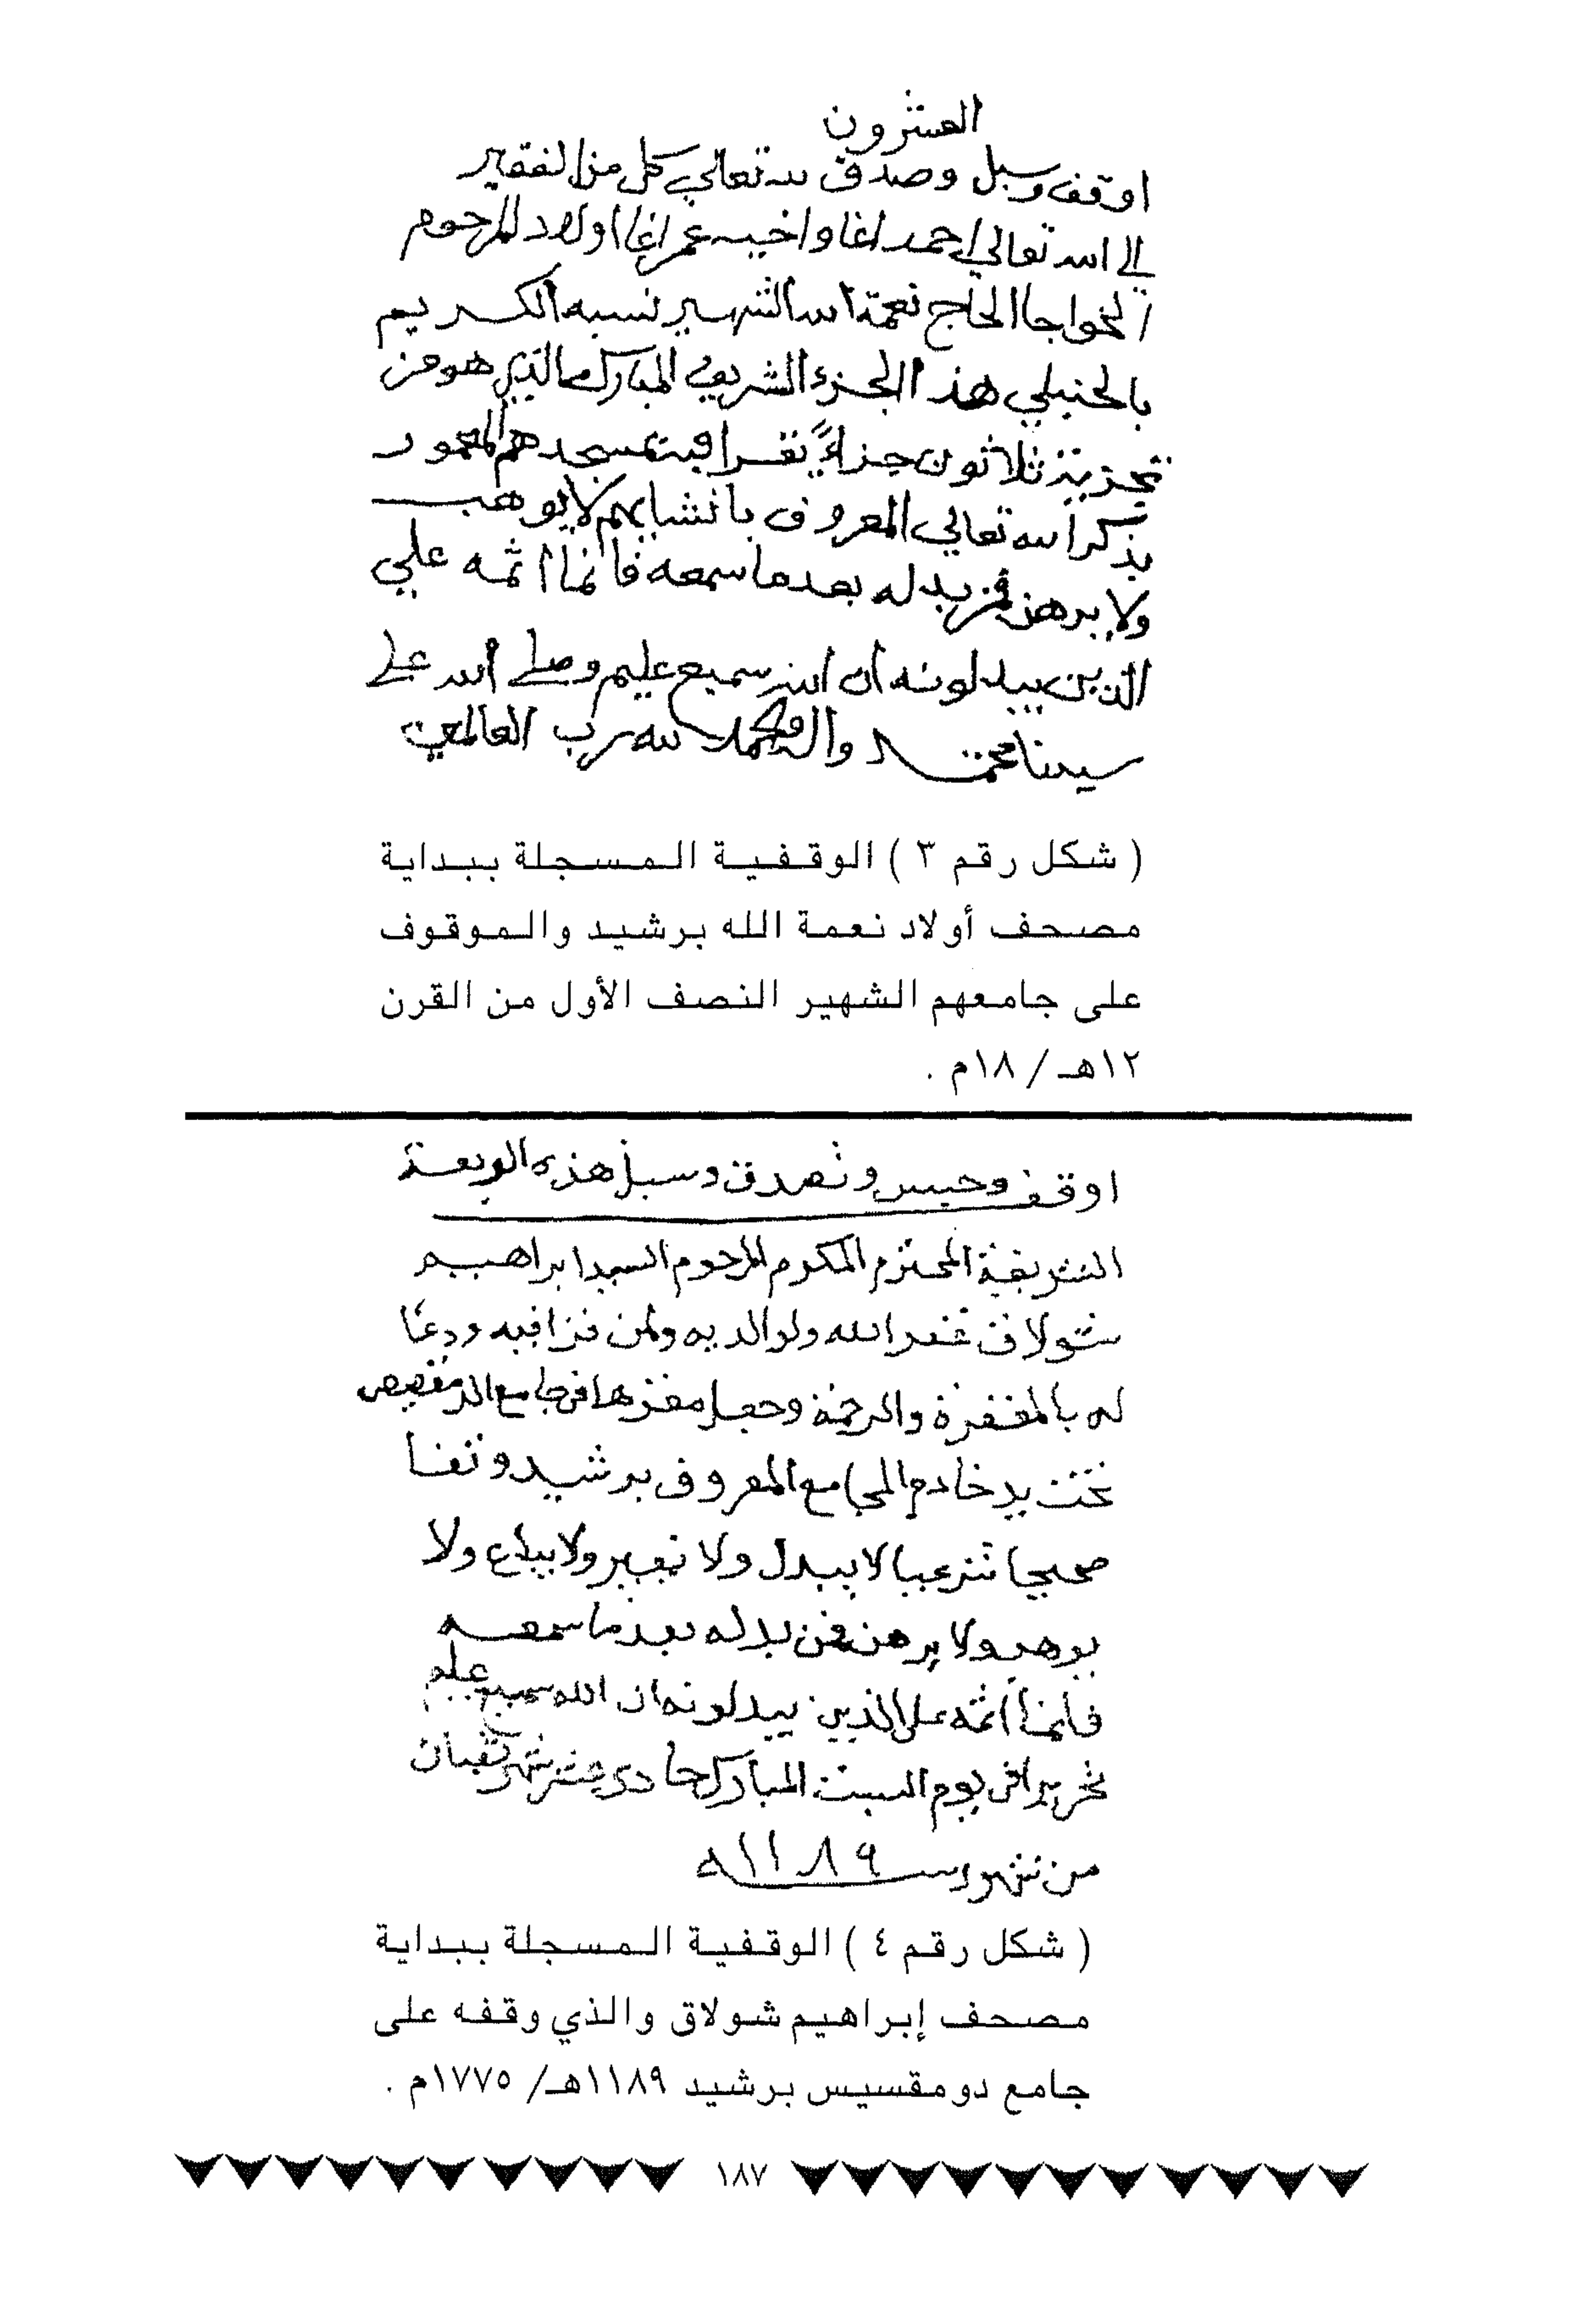 العشرون
اوقف وسبل وصدق لله تعالي كل من الفقير
الى الله تعالي احمد اغا واخيه عمر اغا اولاد المرحوم
الخواجا الحاج نعمة الله الشهير نسبه الكريم
بالحنبلي هذا الجزء الشريف المبارك الذي هو من
تجزية ثلاثون جزاءً تقرا فيه بمسجدهم المعمور
بذكر الله تعالي المعروف بانشايهم لا يوهب
ولا يرهن فمن بدله بعد ما سمعه فانما اثمه علي
الذين يبدلونه ان الله سميع عليم وصلى الله على
سيدنا محمد واله والحمد لله رب العالمين
( شكل رقم ٣ ) الوقفية المسجلة ببداية
مصحف أولاد نعمة الله برشيد والموقوف
على جامعهم الشهير النصف الأول من القرن
١٢هـ / ١٨م .
اوقف وحبس وتصدق وسبل هذه الربعة
الشريفة المحترم المكرم المرحوم السيد ابراهيم
شولاق غفر الله ولوالديه ولمن قرا فيه ودعا
له بالمغفرة والرحمة وجعل مقرها في جامع الدمقصيص
تحت يد خادم الجامع المعروف برشيد وقفا
صحيحا شرعيا لا يبدل ولا يغير ولا يباع ولا
يوهب ولا يرهن فمن بدله بعد ما سمعه
فانما اثمه على الذين يبدلونه ان الله سميع عليم
تحريرا في يوم السبت المبارك حادي عشر شهر شعبان
من شهور سنة ١١٨٩ه
( شكل رقم ٤ ) الوقفية المسجلة ببداية
مصحف إبراهيم شولاق والذي وقفه على
جامع دومقسيس برشيد ١١٨٩هـ/ ١٧٧٥م .
١٨٧